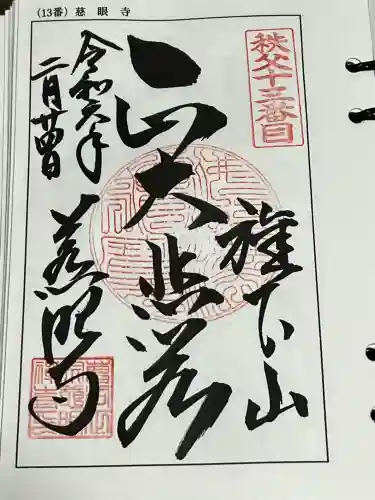 (13番) 慈眼寺
秩父十三番目
旗下山
大悲
令和六年
二月廿四日
慈眼寺